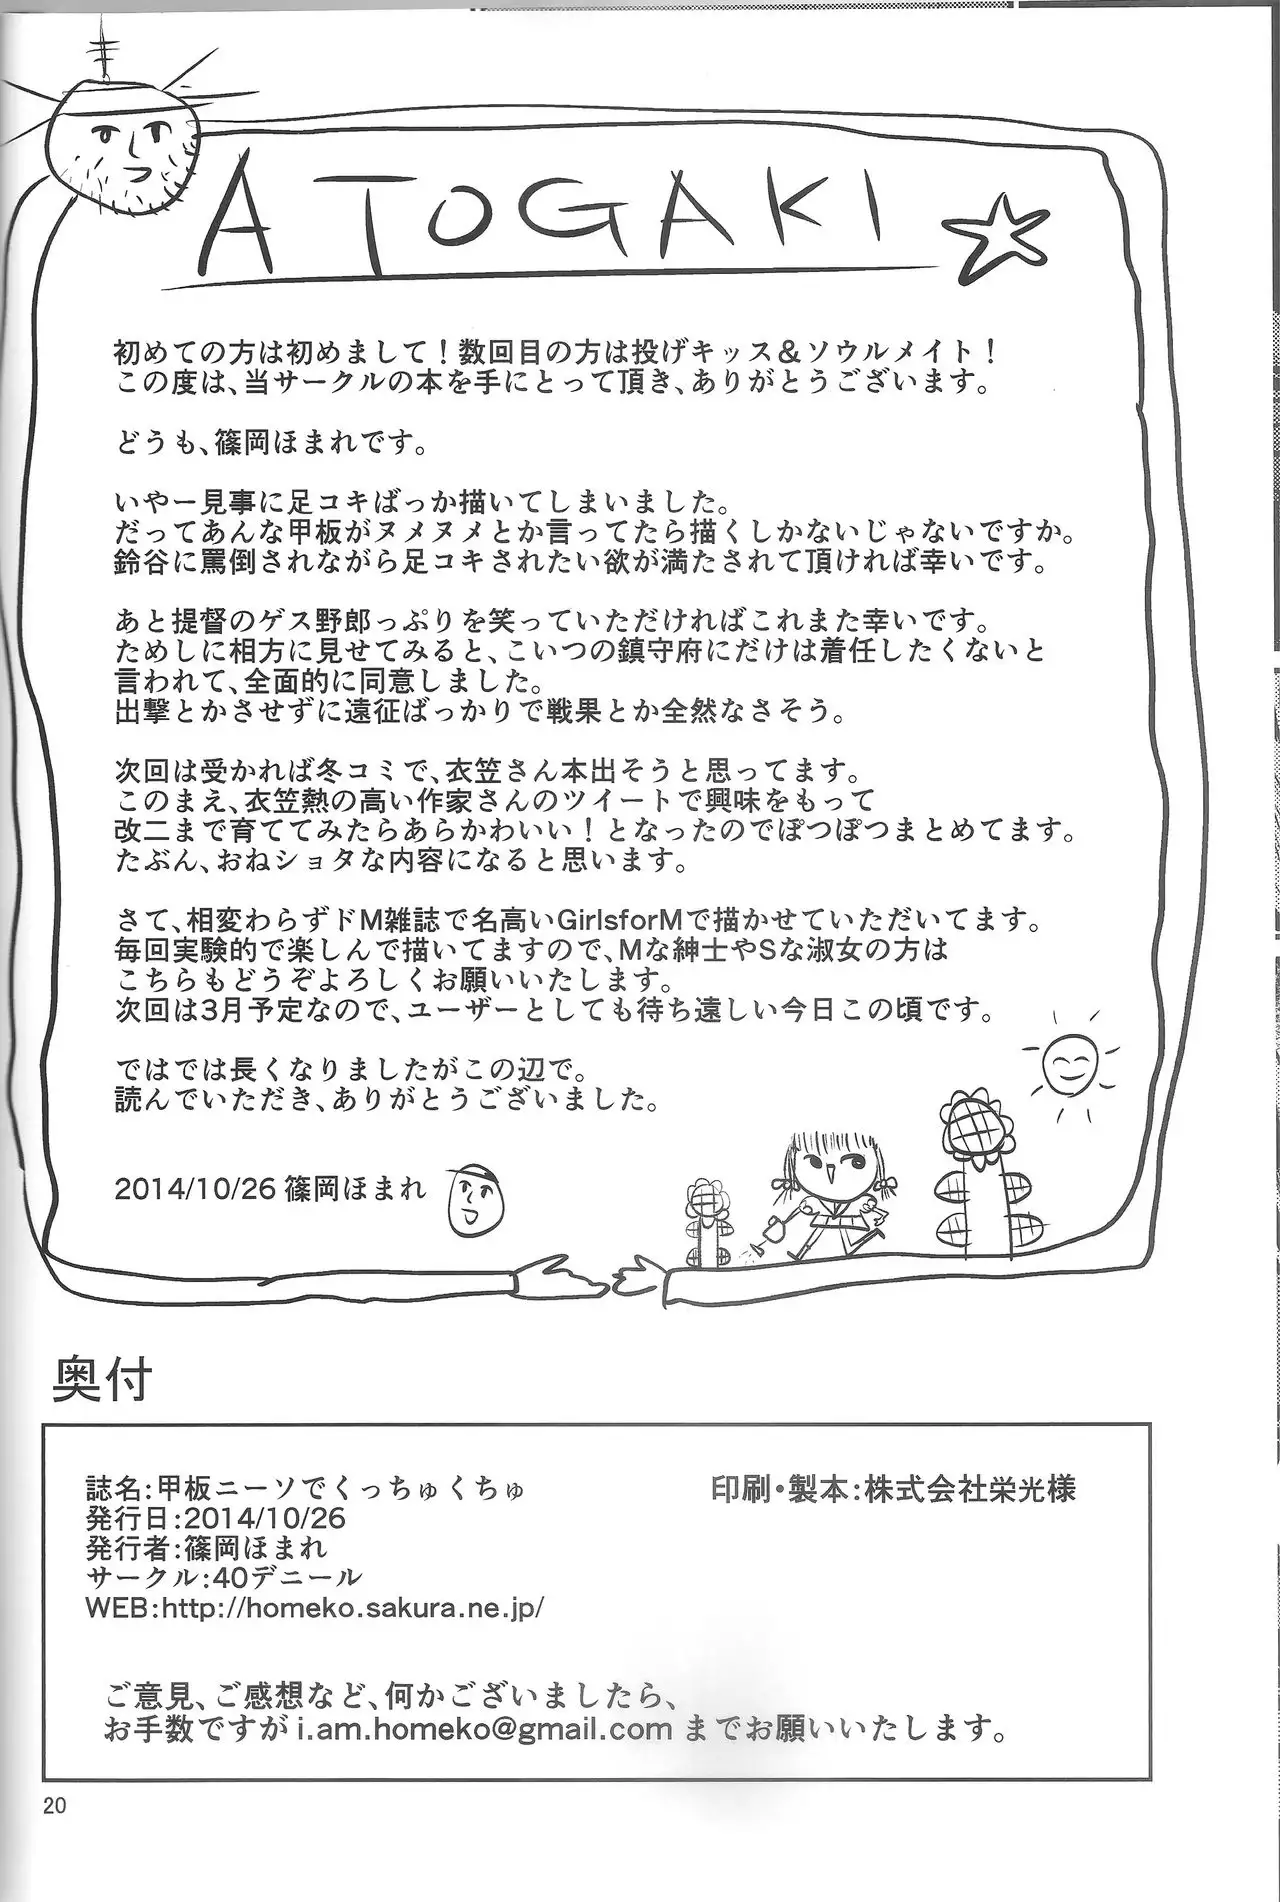 ATOGAKI
初めての方は初めまして！数回目の方は投げキッス＆ソウルメイト！
この度は、当サークルの本を手にとって頂き、ありがとうございます。
どうも、篠岡ほまれです。
いやー見事に足コキばっか描いてしまいました。
だってあんな甲板がヌメヌメとか言ってたら描くしかないじゃないですか。
鈴谷に罵倒されながら足コキされたい欲が満たされて頂ければ幸いです。
あと提督のゲス野郎っぷりを笑っていただければこれまた幸いです。
ためしに相方に見せてみると、こいつの鎮守府にだけは着任したくないと
言われて、全面的に同意しました。
出撃とかさせずに遠征ばっかりで戦果とか全然なさそう。
次回は受かれば冬コミで、衣笠さん本出そうと思ってます。
このまえ、衣笠熱の高い作家さんのツイートで興味をもって
改二まで育ててみたらあらかわいい！となったのでぽつぽつまとめてます。
たぶん、おねショタな内容になると思います。
さて、相変わらずドM雑誌で名高いGirlsforMで描かせていただいてます。
毎回実験的で楽しんで描いてますので、Mな紳士やSな淑女の方は
こちらもどうぞよろしくお願いいたします。
次回は3月予定なので、ユーザーとしても待ち遠しい今日この頃です。
ではでは長くなりましたがこの辺で。
読んでいただき、ありがとうございました。
2014/10/26 篠岡ほまれ
奥付
誌名:甲板ニーソでくっちゅくちゅ
印刷・製本:株式会社栄光様
発行日:2014/10/26
発行者:篠岡ほまれ
サークル:40デニール
WEB:http://homeko.sakura.ne.jp/
ご意見、ご感想など、何かございましたら、
お手数ですが i.am.homeko@gmail.com までお願いいたします。
20